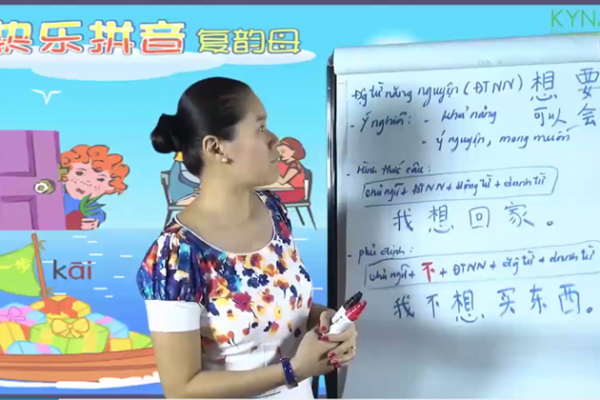 快乐拼音 复韵母
KYNA
一步
kāi
Động từ năng nguyện (ĐTNN) 想 要
可以 会
- Ý nghĩa: - khả năng
- ý nguyện, mong muốn
- Hình thức câu:
chủ ngữ + ĐTNN + động từ + danh từ
我 想 回 家 。
- phủ định:
chủ ngữ + 不 + ĐTNN + động từ + danh từ
我 不 想 买 东 西 。